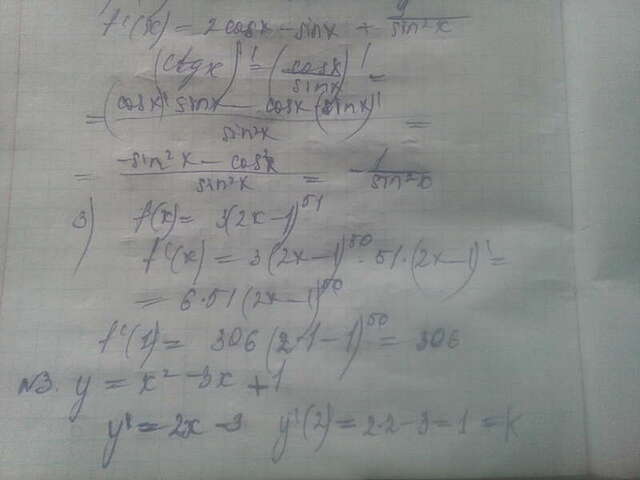 f'(x) = 2cosx - sinx + 4/sin²x
(ctgx)' = (cosx/sinx)' =
= ((cosx)' sinx - cosx (sinx)')/sin²x =
= (-sin²x - cos²x)/sin²x = -1/sin²x
3) f(x) = 3(2x-1)^51
f'(x) = 3(2x-1)^50 · 51 · (2x-1)' =
= 6·51(2x-1)^50
f'(1) = 306(2·1-1)^50 = 306
№3. y = x² - 3x + 1
y' = 2x - 3 y'(2) = 2·2-3 = 1 = k